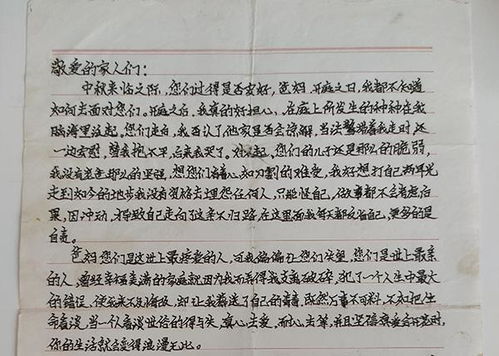 敬爱的家人们：
中秋来临之际，您们过得是否安好，爸妈，开庭之日，我都不知道
如何去面对您们。开庭之后，我真的好担心，在庭上所发生的种种在我
脑海里泛起。您们走后，我再认了他家是否会谅解，当法警带着我走时，还
一边安慰，替我抱不平，后来我哭了。对不起，您们的儿子是那么的脆弱，
我没有您走那么的坚强，想想您们痛心如刀割的难受，我好想打自己两耳光
走到如今的地步我没有资格去埋怨任何人，只能怪自己，做事都不会考虑后
果，因冲动，导致自己走向了这条不归路，在这里面我每天都会自己，更多的是
自责。
爸妈您们是这世上最疼爱的人，可我偏偏让您们失望，您们是世上最亲
的人，曾经幸福美满的家庭就因为我而弄得我支离破碎，犯了一个人生中最大
的错误，使后来不及悔改，却让我葬送了自己的青春，既然万事不可料，不如把生
命看淡，当一个看淡世俗的得与失，真心去爱，而心去等，并且坚信真爱会开花时，
你的生活就会变得浪漫无比。